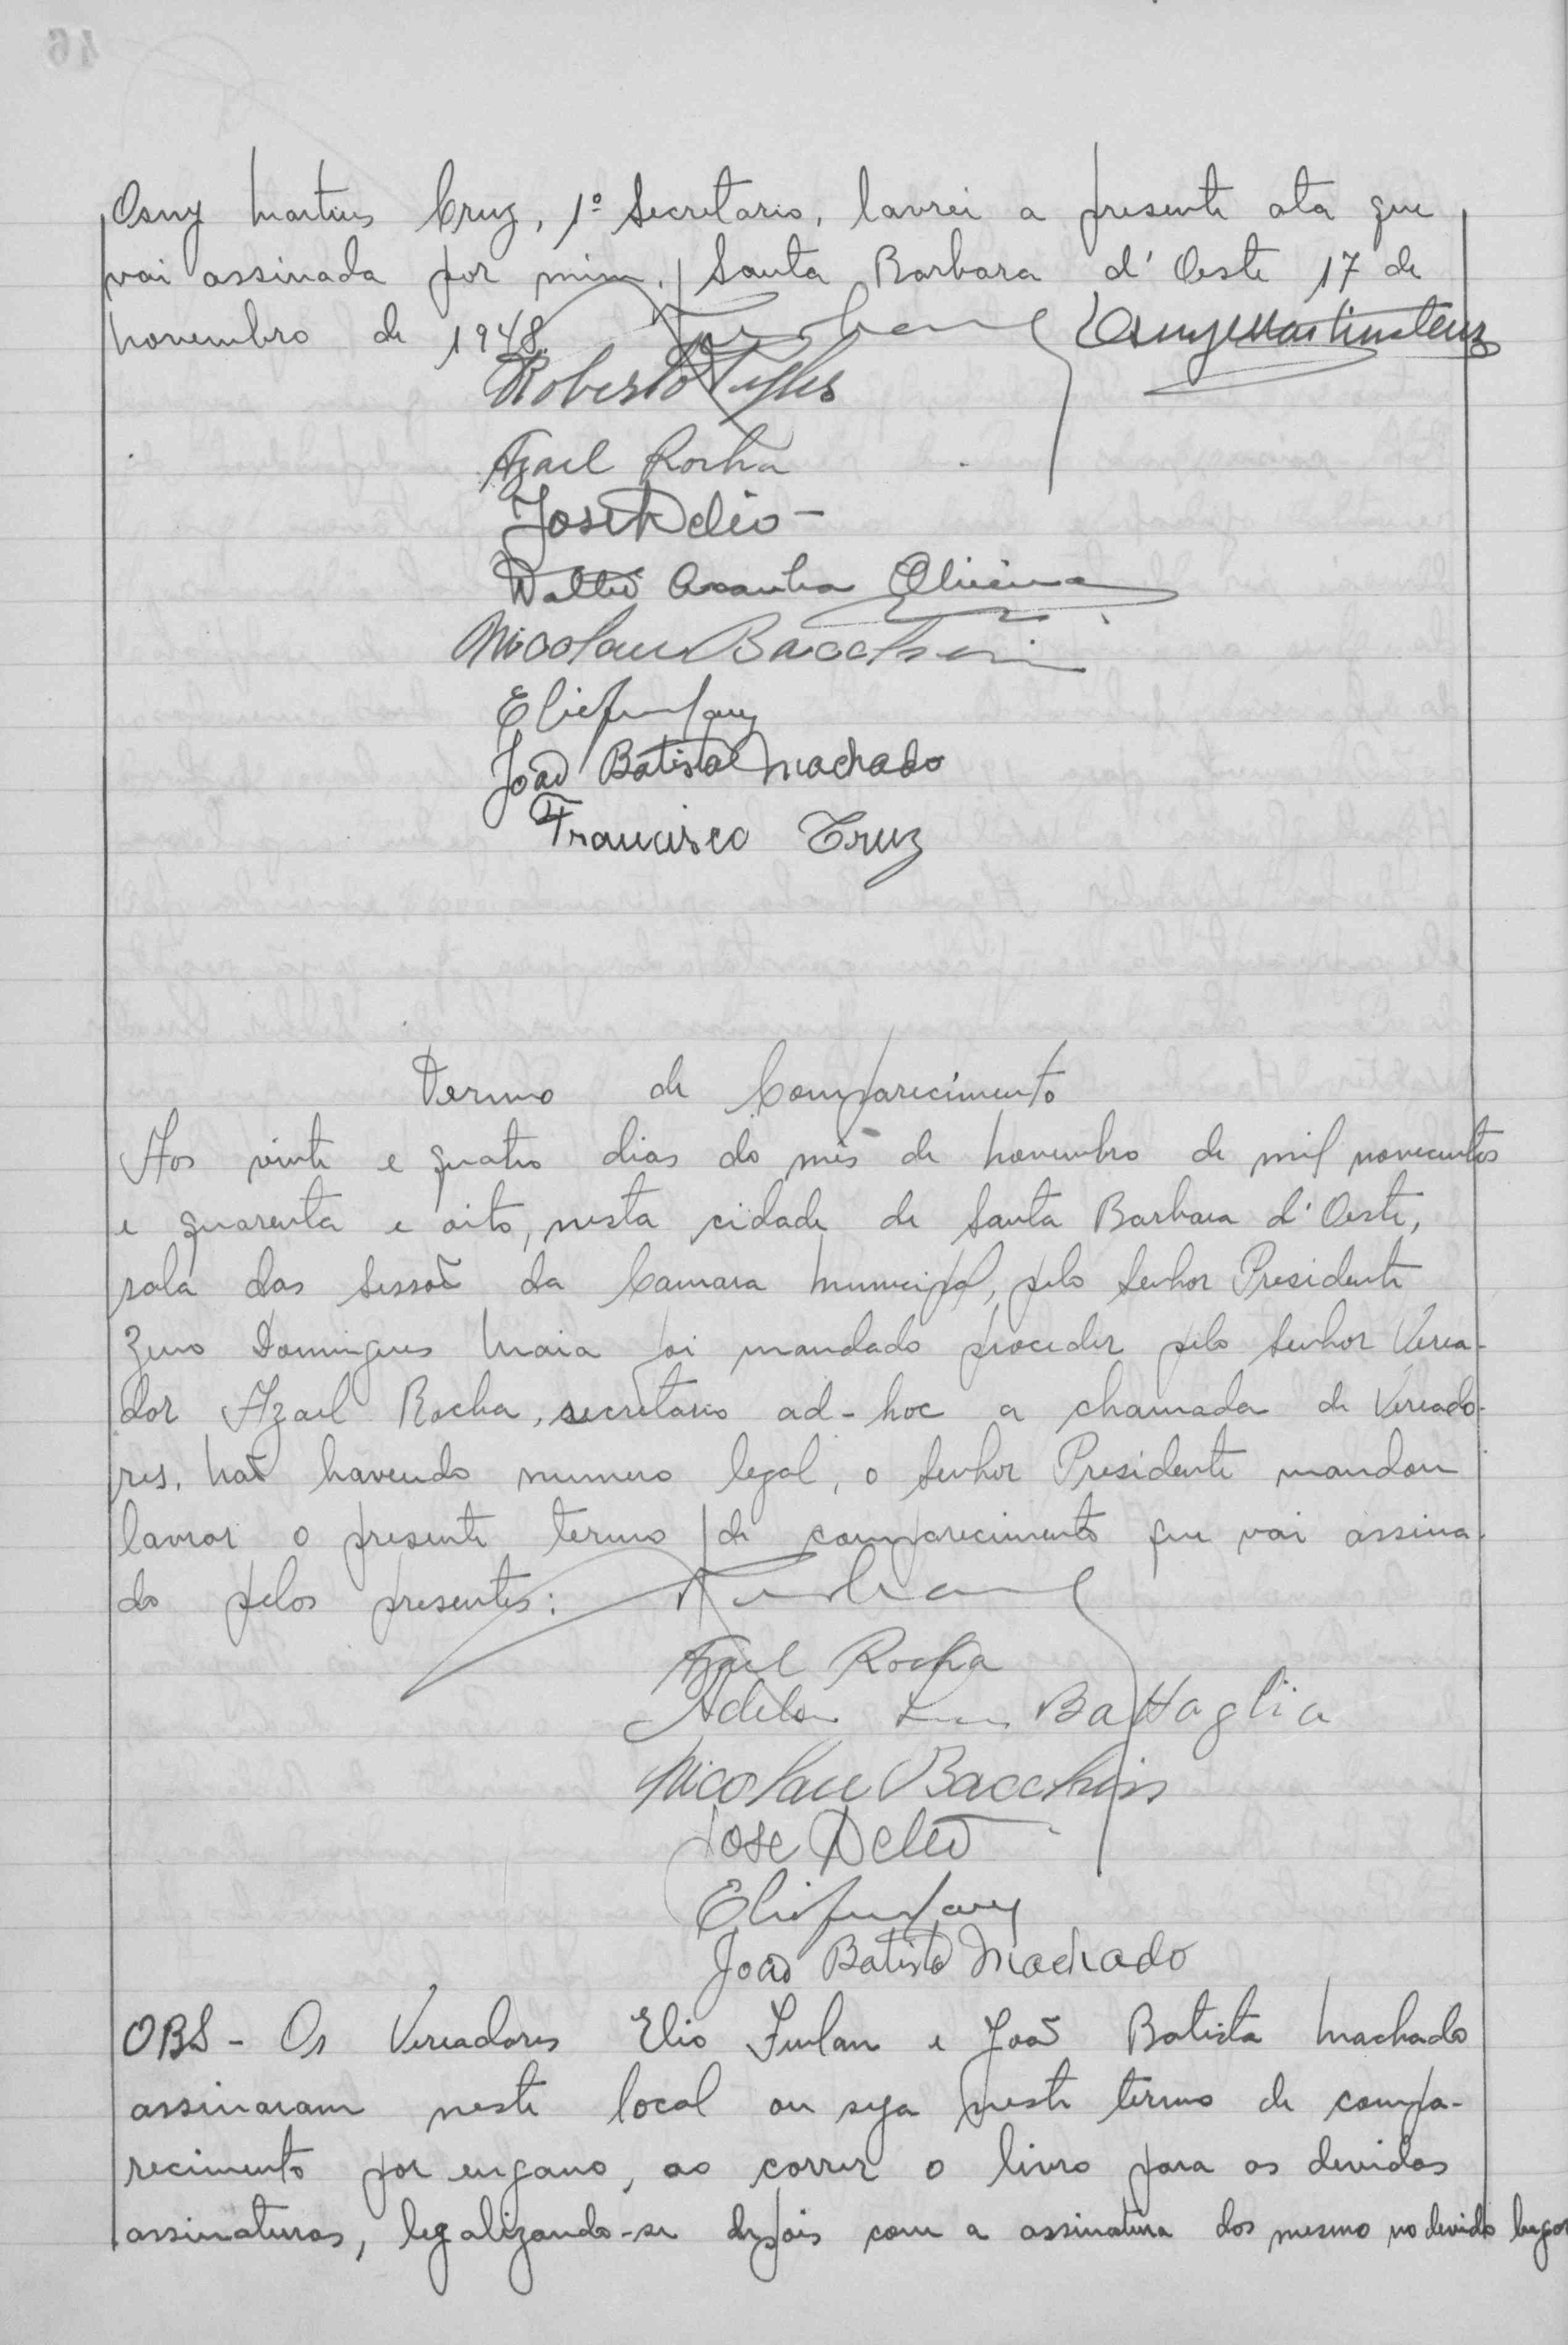 Osny Martins Cruz, 1º Secretario, lavrei a presente ata que
vai assinada por mim. Santa Barbara d' Oeste 17 de
novembro de 1948.
Osny Martins Cruz
Roberto
Azael Rocha
José Deléo -
Walter Aranha Oliveira
Nicolau Bacchin
Elio Furlan
João Batista Machado
Francisco Cruz
Termo de Comparecimento
Aos vinte e quatro dias do mês de novembro de mil novecentos
e quarenta e oito, nesta cidade de Santa Barbara d' Oeste,
sala das sessoẽ da Camara Municipal, pelo Senhor Presidente
Zeno Domingues Maia foi mandado proceder pelo Senhor Verea-
dor Azael Rocha, secretario ad-hoc a chamada de Vereado-
res. Naõ havendo numero legal, o Senhor Presidente mandou
lavrar o presente termo de comparecimento que vai assina-
do pelos presentes:
Azael Rocha
Battaglia
Nicolau Bacchin
José Deléo
Elio Furlan
João Batista Machado
OBS - Os Vereadores Elio Furlan e Joaõ Batista Machado
assinaram neste local ou seja neste termo de compa-
recimento por engano, ao correr o livro para as devidas
assinaturas, legalizando-se depois com a assinatura dos mesmo no devido lugar